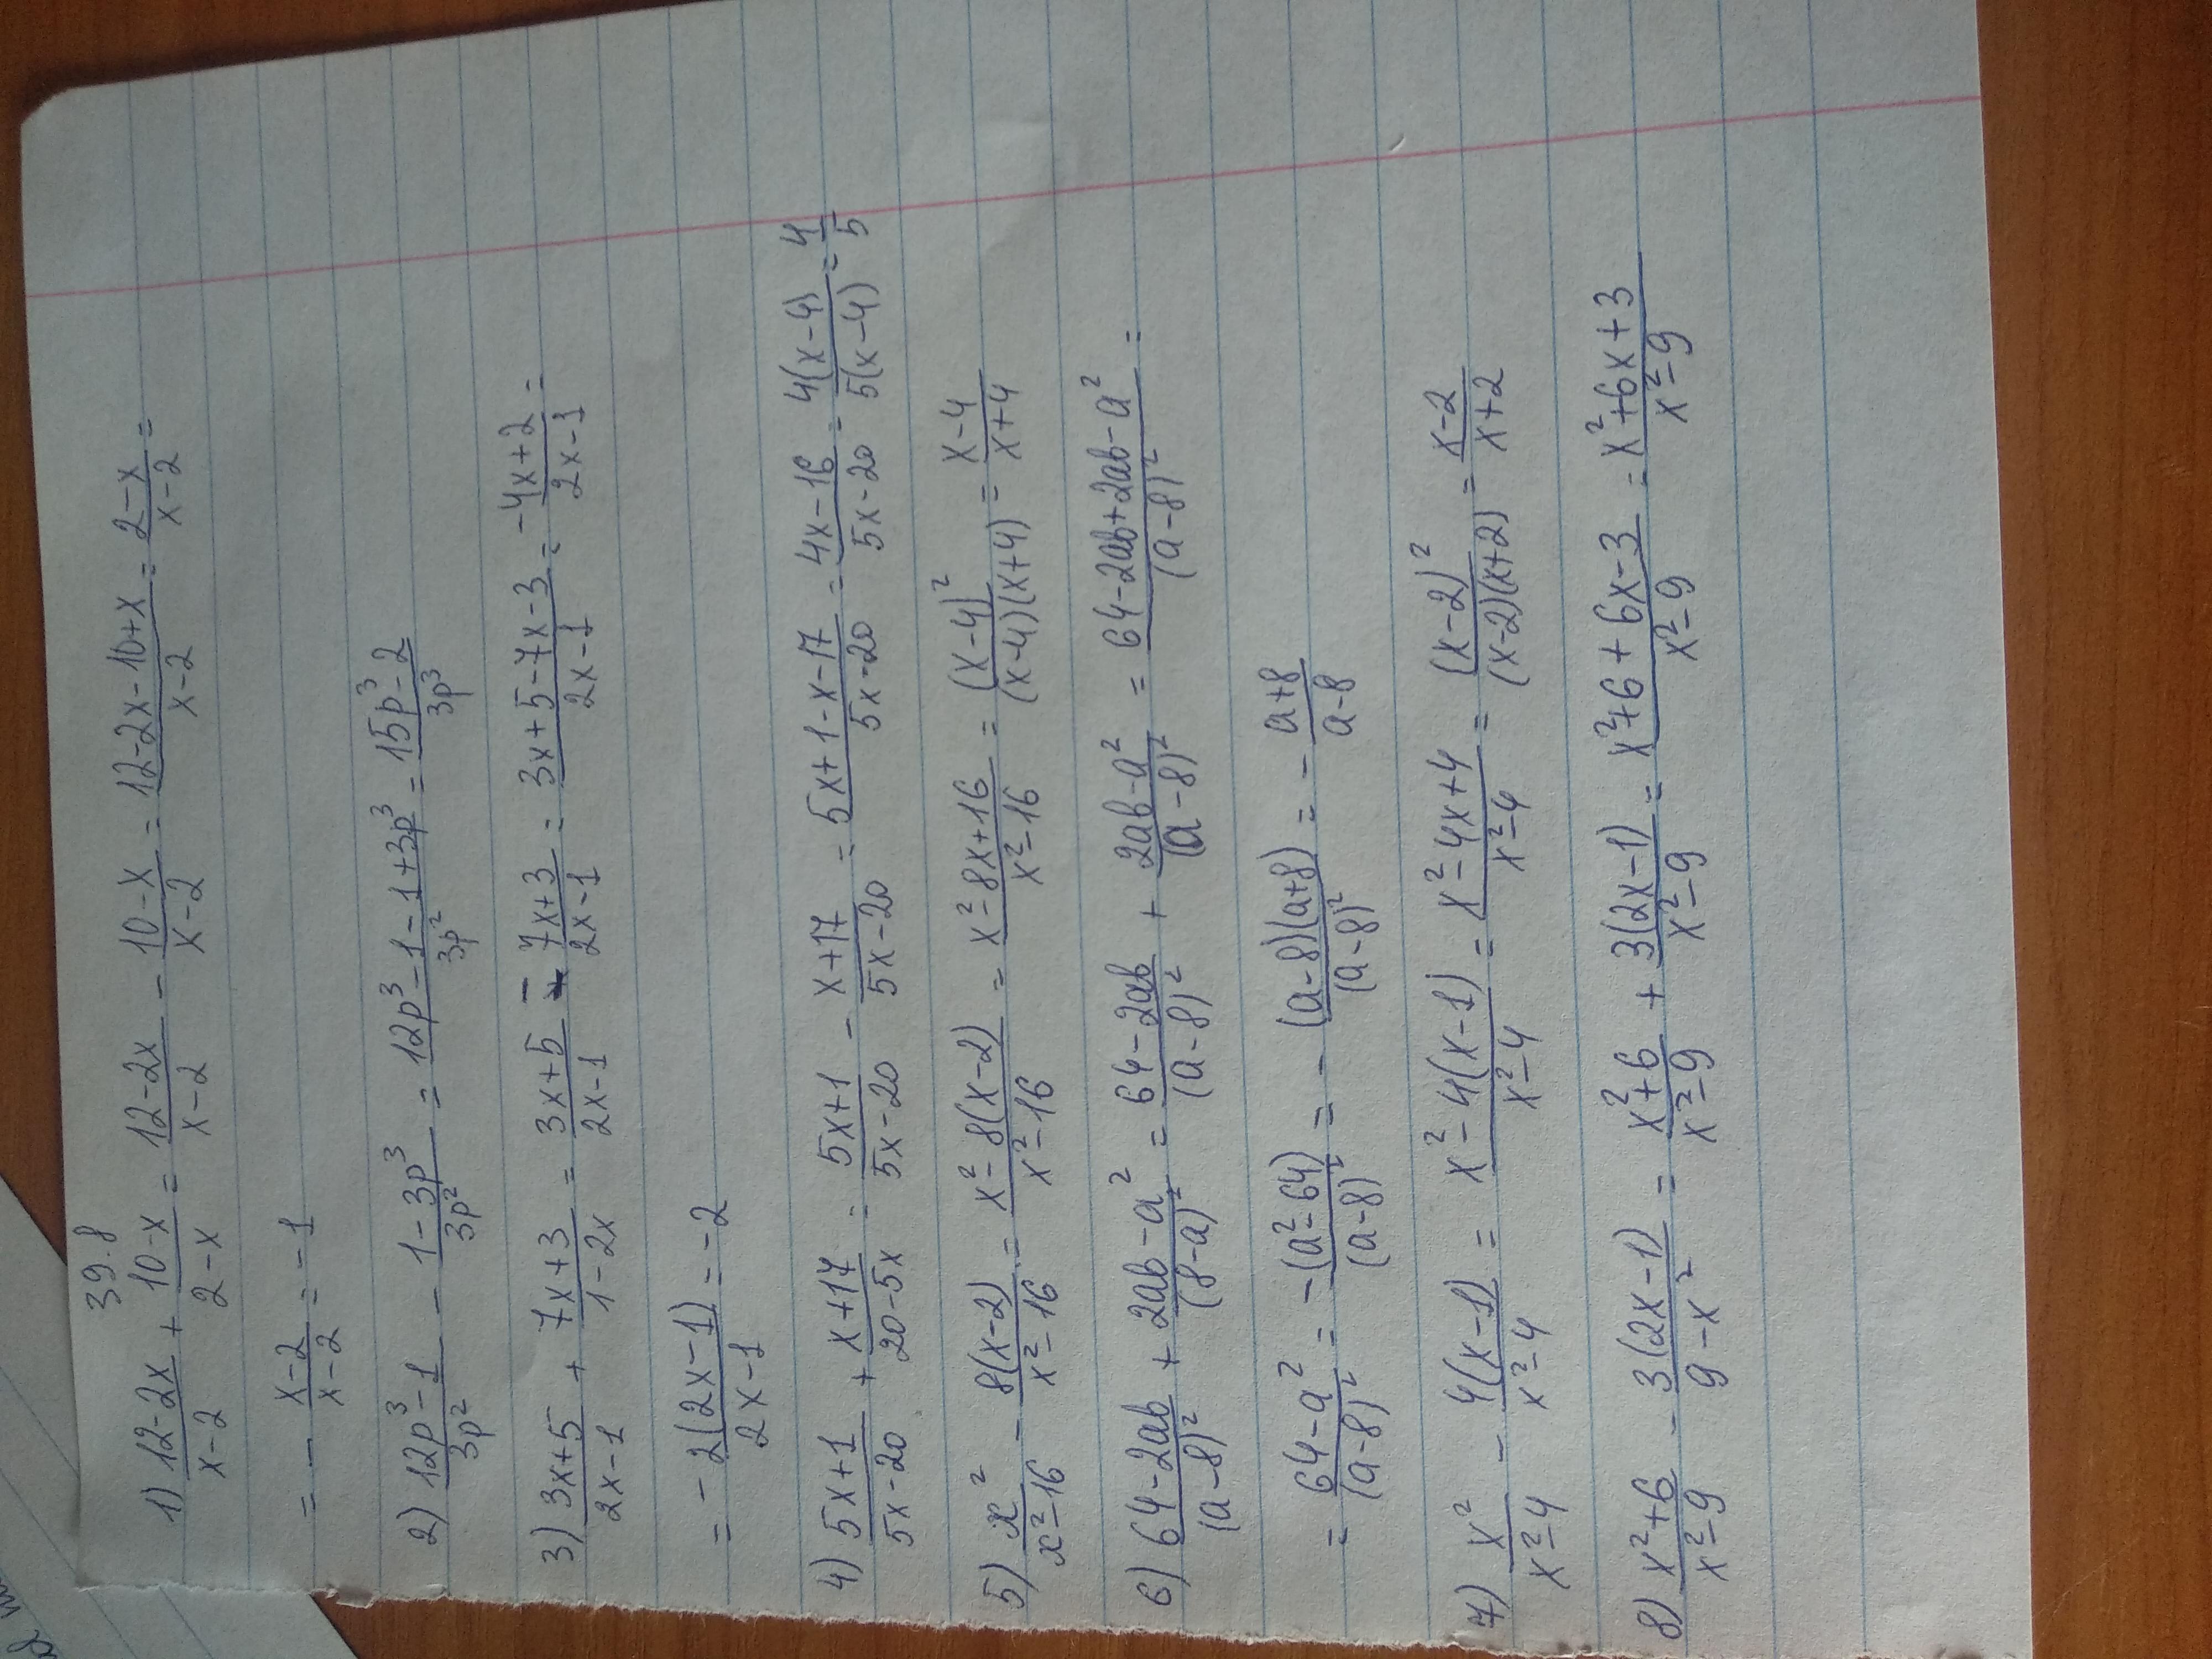 39.8
1) (12-2x)/(x-2) + (10-x)/(2-x) = (12-2x)/(x-2) - (10-x)/(x-2) = (12-2x-10+x)/(x-2) = (2-x)/(x-2) =
= - (x-2)/(x-2) = -1
2) (12p³-1)/(3p²) - (1-3p³)/(3p²) = (12p³-1-1+3p³)/(3p²) = (15p³-2)/(3p³)
3) (3x+5)/(2x-1) + (7x+3)/(1-2x) = (3x+5)/(2x-1) - (7x+3)/(2x-1) = (3x+5-7x-3)/(2x-1) = (-4x+2)/(2x-1) =
= - 2(2x-1)/(2x-1) = -2
4) (5x+1)/(5x-20) + (x+17)/(20-5x) = (5x+1)/(5x-20) - (x+17)/(5x-20) = (5x+1-x-17)/(5x-20) = (4x-16)/(5x-20) = 4(x-4)/5(x-4) = 4/5
5) x²/(x²-16) - 8(x-2)/(x²-16) = (x²-8(x-2))/(x²-16) = (x²-8x+16)/(x²-16) = (x-4)²/(x-4)(x+4) = (x-4)/(x+4)
6) (64-2ab)/(a-8)² + (2ab-a²)/(8-a)² = (64-2ab)/(a-8)² + (2ab-a²)/(a-8)² = (64-2ab+2ab-a²)/(a-8)² =
= (64-a²)/(a-8)² = - (a²-64)/(a-8)² = - (a-8)(a+8)/(a-8)² = - (a+8)/(a-8)
7) x²/(x²-4) - 4(x-1)/(x²-4) = (x²-4(x-1))/(x²-4) = (x²-4x+4)/(x²-4) = (x-2)²/(x-2)(x+2) = (x-2)/(x+2)
8) (x²+6)/(x²-9) - 3(2x-1)/(9-x²) = (x²+6)/(x²-9) + 3(2x-1)/(x²-9) = (x²+6+6x-3)/(x²-9) = (x²+6x+3)/(x²-9)